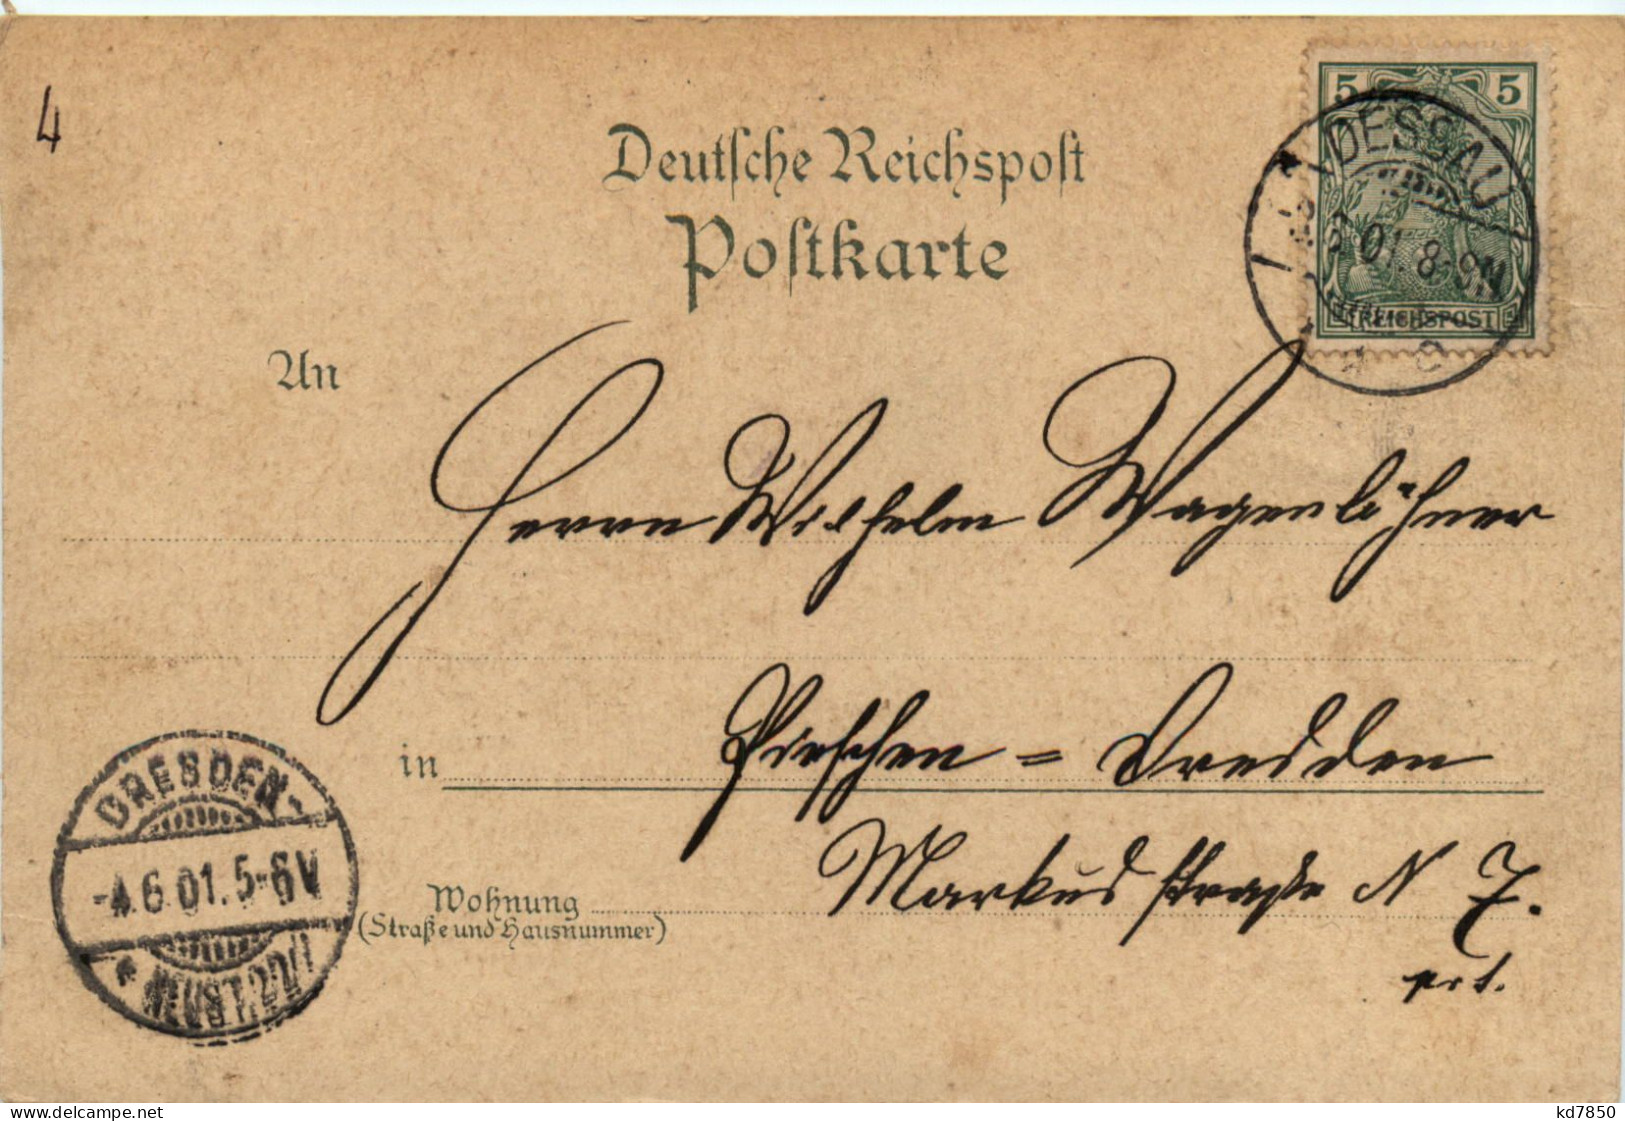 4
Deutsche Reichspost
Postkarte
5 5
DESSAU
01. 8-9N
REICHSPOST
An
Herrn Wilhelm Wagenlöhner
in Pieschen = Dresden
Wohnung
(Straße und Hausnummer)
Markusstraße N 7.
prt.
DRESDEN-
-4.6.01.5-6V
* NEUSTADT
www.delcampe.net
kd7850